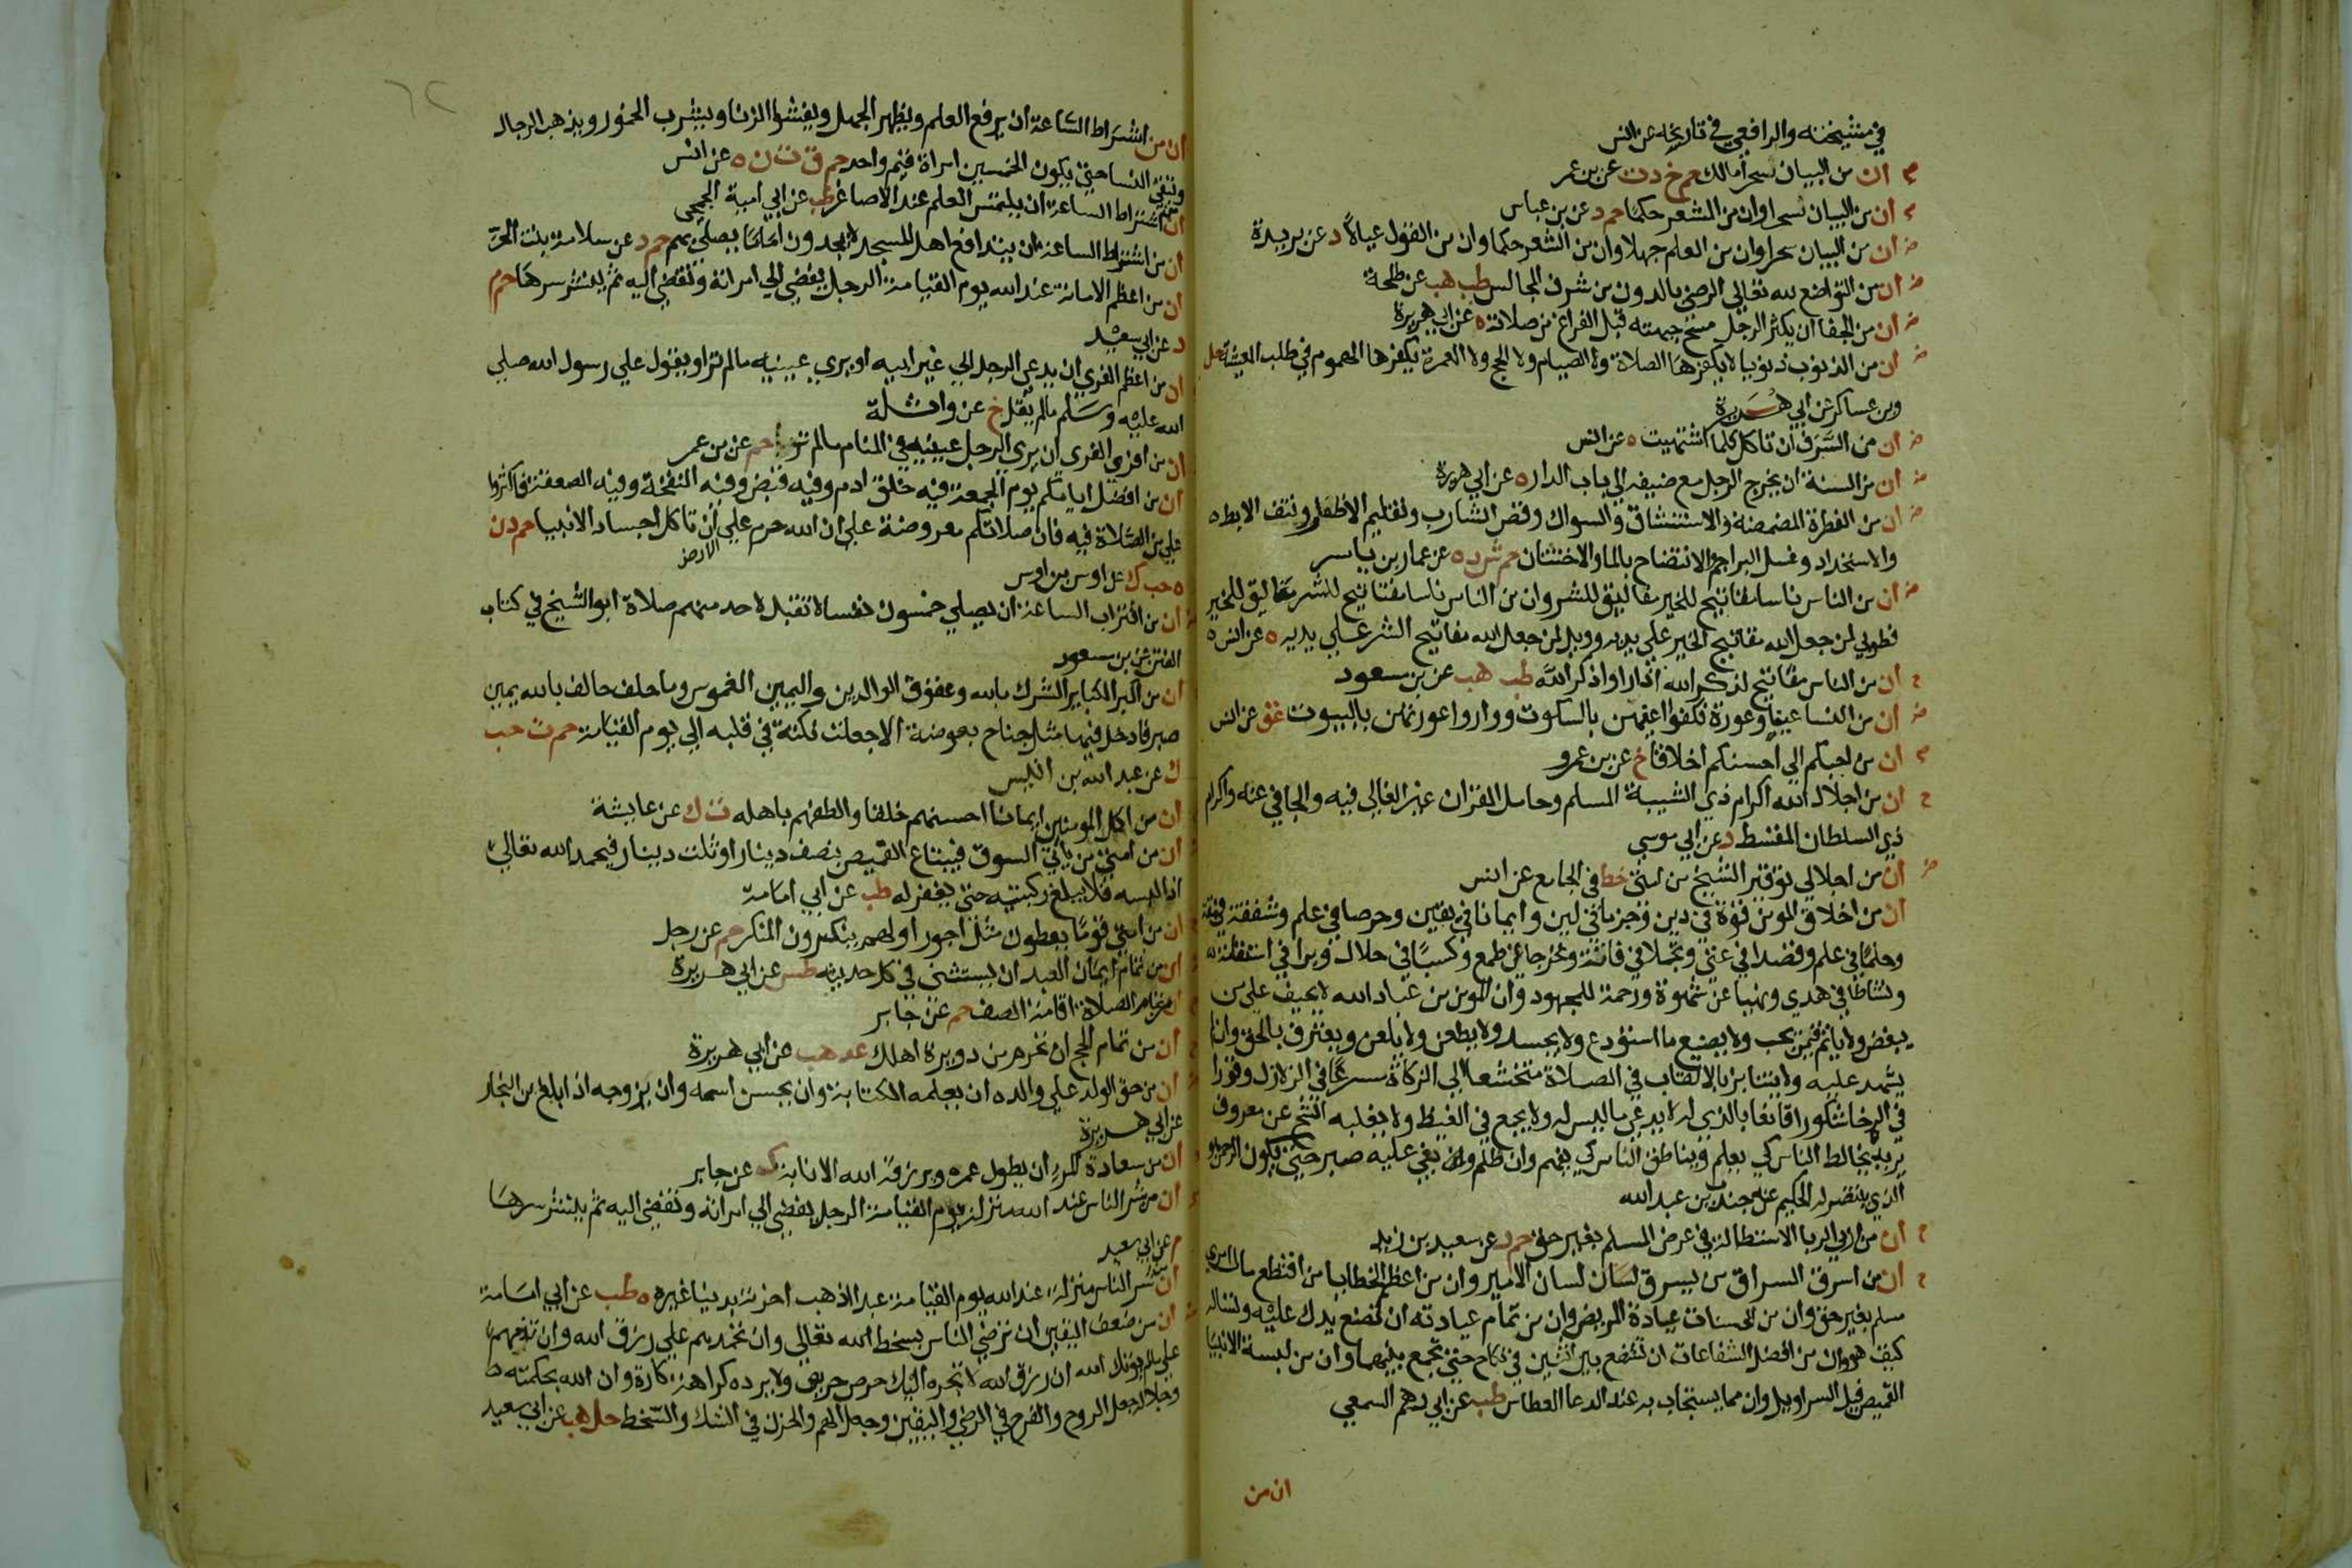 في مشيخته والرافعي في تاريخه عن انس
ان من البيان لسحرا مالك حم خ د ت عن بن عمر
ان من البيان لسحرا وان من الشعر حكما حم د عن بن عباس
ان من البيان سحرا وان من العلم جهلا وان من الشعر حكما وان من القول عيالا د عن بريدة
ان من التواضع لله تعالي الرضي بالدون من شرف المجالس طب هب عن طلحة
ان من الجفا ان يكثر الرجل مسح جبهته قبل الفراغ من صلاته ه عن ابي هريرة
ان من الذنوب ذنوبا لا يكفرها الصلاة ولا الصيام ولا الحج ولا العمرة يكفرها الهموم في طلب المعيشة حل
وبن عساكر عن ابي هريرة
ان من السرف ان تاكل كلما اشتهيت ه عن انس
ان من السنة ان يخرج الرجل مع ضيفه الي باب الدار ه عن ابي هريرة
ان من الفطرة المضمضة والاستنشاق والسواك وقص الشارب وتقليم الاظفار ونتف الابط ه
والاستحداد وغسل البراجم والانتضاح بالما والاختتان حم ش د ه عن عمار بن ياسر
ان من الناس ناسا مفاتيح للخير مغاليق للشر وان من الناس ناسا مفاتيح للشر مغاليق للخير
فطوبي لمن جعل الله مفاتيح الخير علي يديه وويل لمن جعل الله مفاتيح الشر علي يديه ه عن انس ه
ان من الناس مفاتيح لذكر الله اذا راوا ذكر الله طب هب عن بن سعود
ان من النسا عيا وعورة فكفوا عيهن بالسكوت وواروا عوراتهن بالبيوت عق عن انس
ان من احبكم الي احسنكم اخلاقا خ عن بن عمرو
ان من اجلال الله اكرام ذي الشيبة المسلم وحامل القران غير الغالي فيه والجافي عنه واكرام
ذي السلطان المقسط د عن ابي موسي
ان من اجلالي توقير الشيخ من امتي خط في الجامع عن انس
ان من اخلاق المومن قوة في دين وحزما في لين وايمانا في يقين وحرصا في علم وشفقة في مقة
وحلما في علم وقصدا في غني وتجملا في فاقة وتحرجا عن طمع وكسبا في حلال وبرا في استقامة
ونشاطا في هدي ونهيا عن شهوة ورحمة للمجهود وان المومن من عباد الله لا يحيف علي من
يبغض ولا ياثم فيمن يحب ولا يضيع ما استودع ولا يحسد ولا يطعن ولا يلعن ويعترف بالحق وان لم
يشهد عليه ولا يتنابز بالالقاب في الصلاة متخشعا الي الزكاة مسرعا في الزلازل وقورا
في الرخا شكورا قانعا بالذي له لا يدعي ما ليس له ولا يجمع في الغيظ ولا يغلبه الشح عن معروف
يريده يخالط الناس كي يعلم ويناطق الناس كي يفهم وان ظلم وبغي عليه صبر حتي يكون الرحمن هو
الذي ينتصر له الحكيم عن جندب بن عبد الله
ان من اربي الربا الاستطالة في عرض المسلم بغير حق حم د عن سعيد بن زيد
ان من اسرق السراق من يسرق لسان الامير وان من اعظم الخطايا من اقتطع مال امري
مسلم بغير حق وان من الحسنات عيادة المريض وان من تمام عيادته ان تضع يدك عليه وتساله
كيف هو وان من افضل الشفاعات ان تشفع بين اثنين في نكاح حتي تجمع بينهما وان من لبسة الانبيا
القميص قبل السراويل وان مما يستجاب به عند الدعا العطاس طب عن ابي رهم السمعي
ان من
ان من اشراط الساعة ان يرفع العلم ويظهر الجهل ويفشوا الزنا ويشرب الخمر ويذهب الرجال
وتبقي النسا حتي يكون لخمسين امراة قيم واحد حم ق ت ن ه عن انس
ان من اشراط الساعة ان يلتمس العلم عند الاصاغر طب عن ابي امية الجمحي
ان من اشراط الساعة ان يتدافع اهل المسجد لا يجدون اماما يصلي بهم حم د عن سلامة بنت الحر
ان من اعظم الامانة عند الله يوم القيامة الرجل يفضي الي امراته وتفضي اليه ثم ينشر سرها حم م
د عن ابي سعيد
ان من اعظم الفري ان يدعي الرجل الي غير ابيه او يري عينيه ما لم تر او يقول علي رسول الله صلي
الله عليه وسلم ما لم يقل خ عن واثلة
ان من افري الفري ان يري الرجل عينيه في المنام ما لم تريا حم عن بن عمر
ان من افضل ايامكم يوم الجمعة فيه خلق ادم وفيه قبض وفيه النفخة وفيه الصعقة فاكثروا
علي من الصلاة فيه فان صلاتكم معروضة علي ان الله حرم علي الارض ان تاكل اجساد الانبيا حم د ن
ه حب ك عن اوس بن اوس
ان من اقتراب الساعة ان يصلي خمسون نفسا لا تقبل لاحد منهم صلاة ابو الشيخ في كتاب
الفتن عن بن مسعود
ان من اكبر الكباير الشرك بالله وعقوق الوالدين واليمين الغموس وما حلف حالف بالله يمين
صبر فادخل فيها مثل جناح بعوضة الا جعلت نكتة في قلبه الي يوم القيامة حم ت حب
ك عن عبد الله بن انيس
ان من اكمل المومنين ايمانا احسنهم خلقا والطفهم باهله ت ك عن عايشة
ان من امتي من ياتي السوق فيبتاع القميص بنصف دينار او ثلث دينار فيحمد الله تعالي
اذا لبسه فلا يبلغ ركبتيه حتي يغفر له طب عن ابي امامة
ان من امتي قوما يعطون مثل اجور اولهم ينكرون المنكر حم عن رجل
ان من تمام ايمان العبد ان يستثني في كل حديثه طس عن ابي هريرة
ان من تمام الصلاة اقامة الصف حم عن جابر
ان من تمام الحج ان تحرم من دويرة اهلك عد هب عن ابي هريرة
ان من حق الولد علي والده ان يعلمه الكتابة وان يحسن اسمه وان يزوجه اذا بلغ بن النجار
عن ابي هريرة
ان من سعادة المرء ان يطول عمره ويرزقه الله الانابة ك عن جابر
ان من شر الناس عند الله منزلة يوم القيامة الرجل يفضي الي امراته وتفضي اليه ثم ينشر سرها
م عن ابي سعيد
ان من شر الناس منزلة عند الله يوم القيامة عبد اذهب اخرته بدنيا غيره ه طب عن ابي امامة
ان من ضعف اليقين ان ترضي الناس بسخط الله تعالي وان تحمدهم علي رزق الله وان تذمهم
علي ما لم يوتك الله ان رزق الله لا يجره اليك حرص حريص ولا يرده كراهة كاره وان الله بحكمته
وجلاله جعل الروح والفرح في الرضي واليقين وجعل الهم والحزن في الشك والسخط حل هب عن ابي سعيد